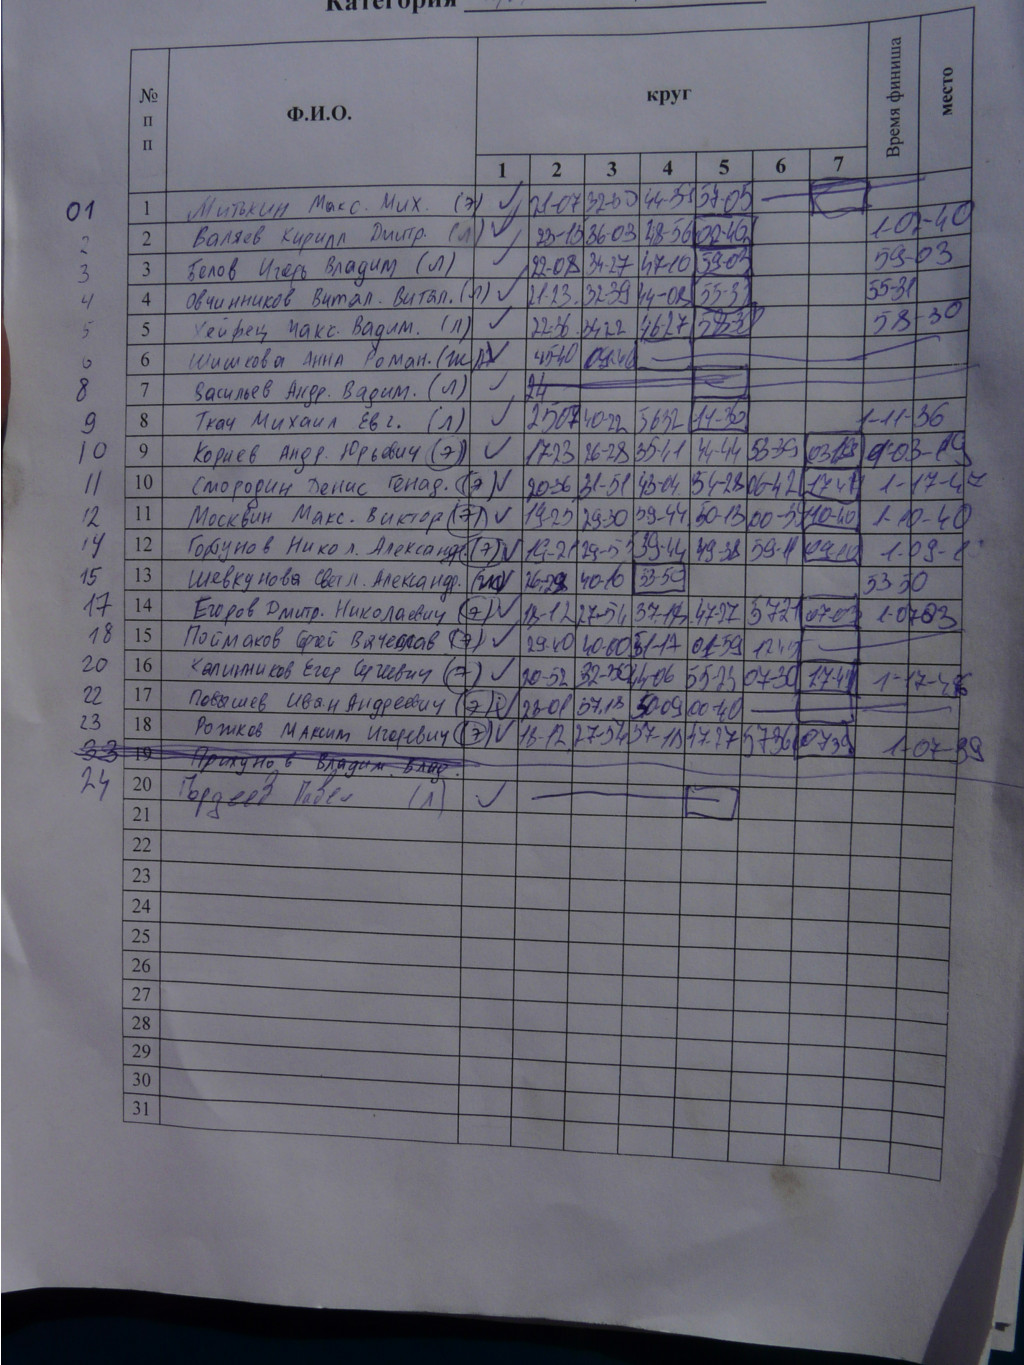 Категория
№ п п Ф.И.О. круг Время финиша место
1 2 3 4 5 6 7
01 1 Митькин Макс. Мих. (Э) ✓ 21-07 32-50 44-51 57-05
2 2 Валяев Кирилл Дмитр. (Л) ✓ 23-13 36-03 48-56 02-40 1-02-40
3 3 Белов Игорь Владим (Л) ✓ 22-08 34-27 47-10 59-03 59-03
4 4 Овчинников Витал. Витал. (Л) ✓ 21-23 32-39 44-08 55-31 55-31
5 5 Макс. Вадим. (Л) ✓ 22-36 34 22 46 27 58 30 58-30
6 6 Шишкова Анна Роман. ✓ 45 40
8 7 Васильев Андр. Вадим. (Л) ✓ 24
9 8 Ткач Михаил Евг. (Л) ✓ 25 07 40-22 56 32 11-36 1-11-36
10 9 Корнев Андр. Юрьевич (Э) ✓ 17-23 26-28 35-41 44-44 53-39 03-19 1-03-19
11 10 Смородин Денис Генад. (Э) ✓ 20-36 31-51 43-04 54-28 06-42 17 47 1-17-47
12 11 Москвин Макс. Виктор (Э) ✓ 19-25 29-30 39-44 50-13 10-40 1-10-40
14 12 Горбунов Никол. Александр. (Э) ✓ 19-21 29-53 39-44 49-38 59-11 1-09-
15 13 Шевкунова Светл. Александр. ✓ 26-28 40-10 53-50 53 50
17 14 Егоров Дмитр. Николаевич (Э) ✓ 18-12 27-54 37-17 47-27 57 21 07-03 1-07 03
18 15 Поймаков Сергей Вячеслав (Э) ✓ 29-40 40-60 51-17 01-59
20 16 Калинников Егор Сергеевич (Э) ✓ 20-52 44-06 55-23 07-30 17-46 1-17-46
22 17 Повышев Иван Андреевич (Э) ✓ 37.18 50-09 00-40
23 18 Рожков Максим Игоревич (Э) ✓ 18-12 27-54 37-18 47-27 57 36 07 39 1-07-39
23 19 Владим. Влад.
24 20 Гордеев Павел (Л) ✓
21
22
23
24
25
26
27
28
29
30
31